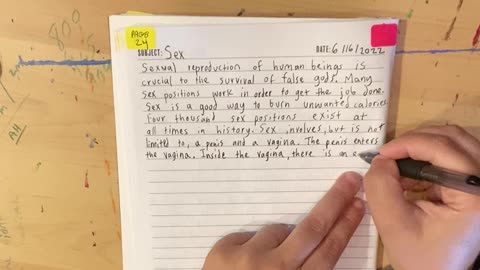 PAGE
24
SUBJECT: Sex
DATE: 6/16/2022
Sexual reproduction of human beings is
crucial to the survival of false gods. Many
sex positions work in order to get the job done.
Sex is a good way to burn unwanted calories.
Four thousand sex positions exist at
all times in history. Sex involves, but is not
limited to, a penis and a vagina. The penis enters
the vagina. Inside the vagina, there is an e
500
AH